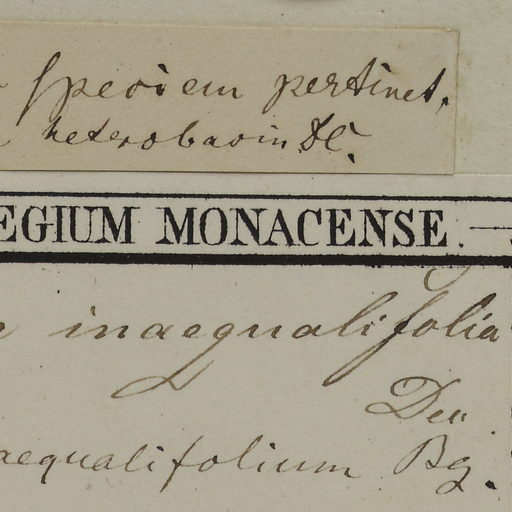 speciem pertinet,
heterobasin DC.
EGIUM MONACENSE.
inaequalifolia
Dec.
aequalifolium Bg.